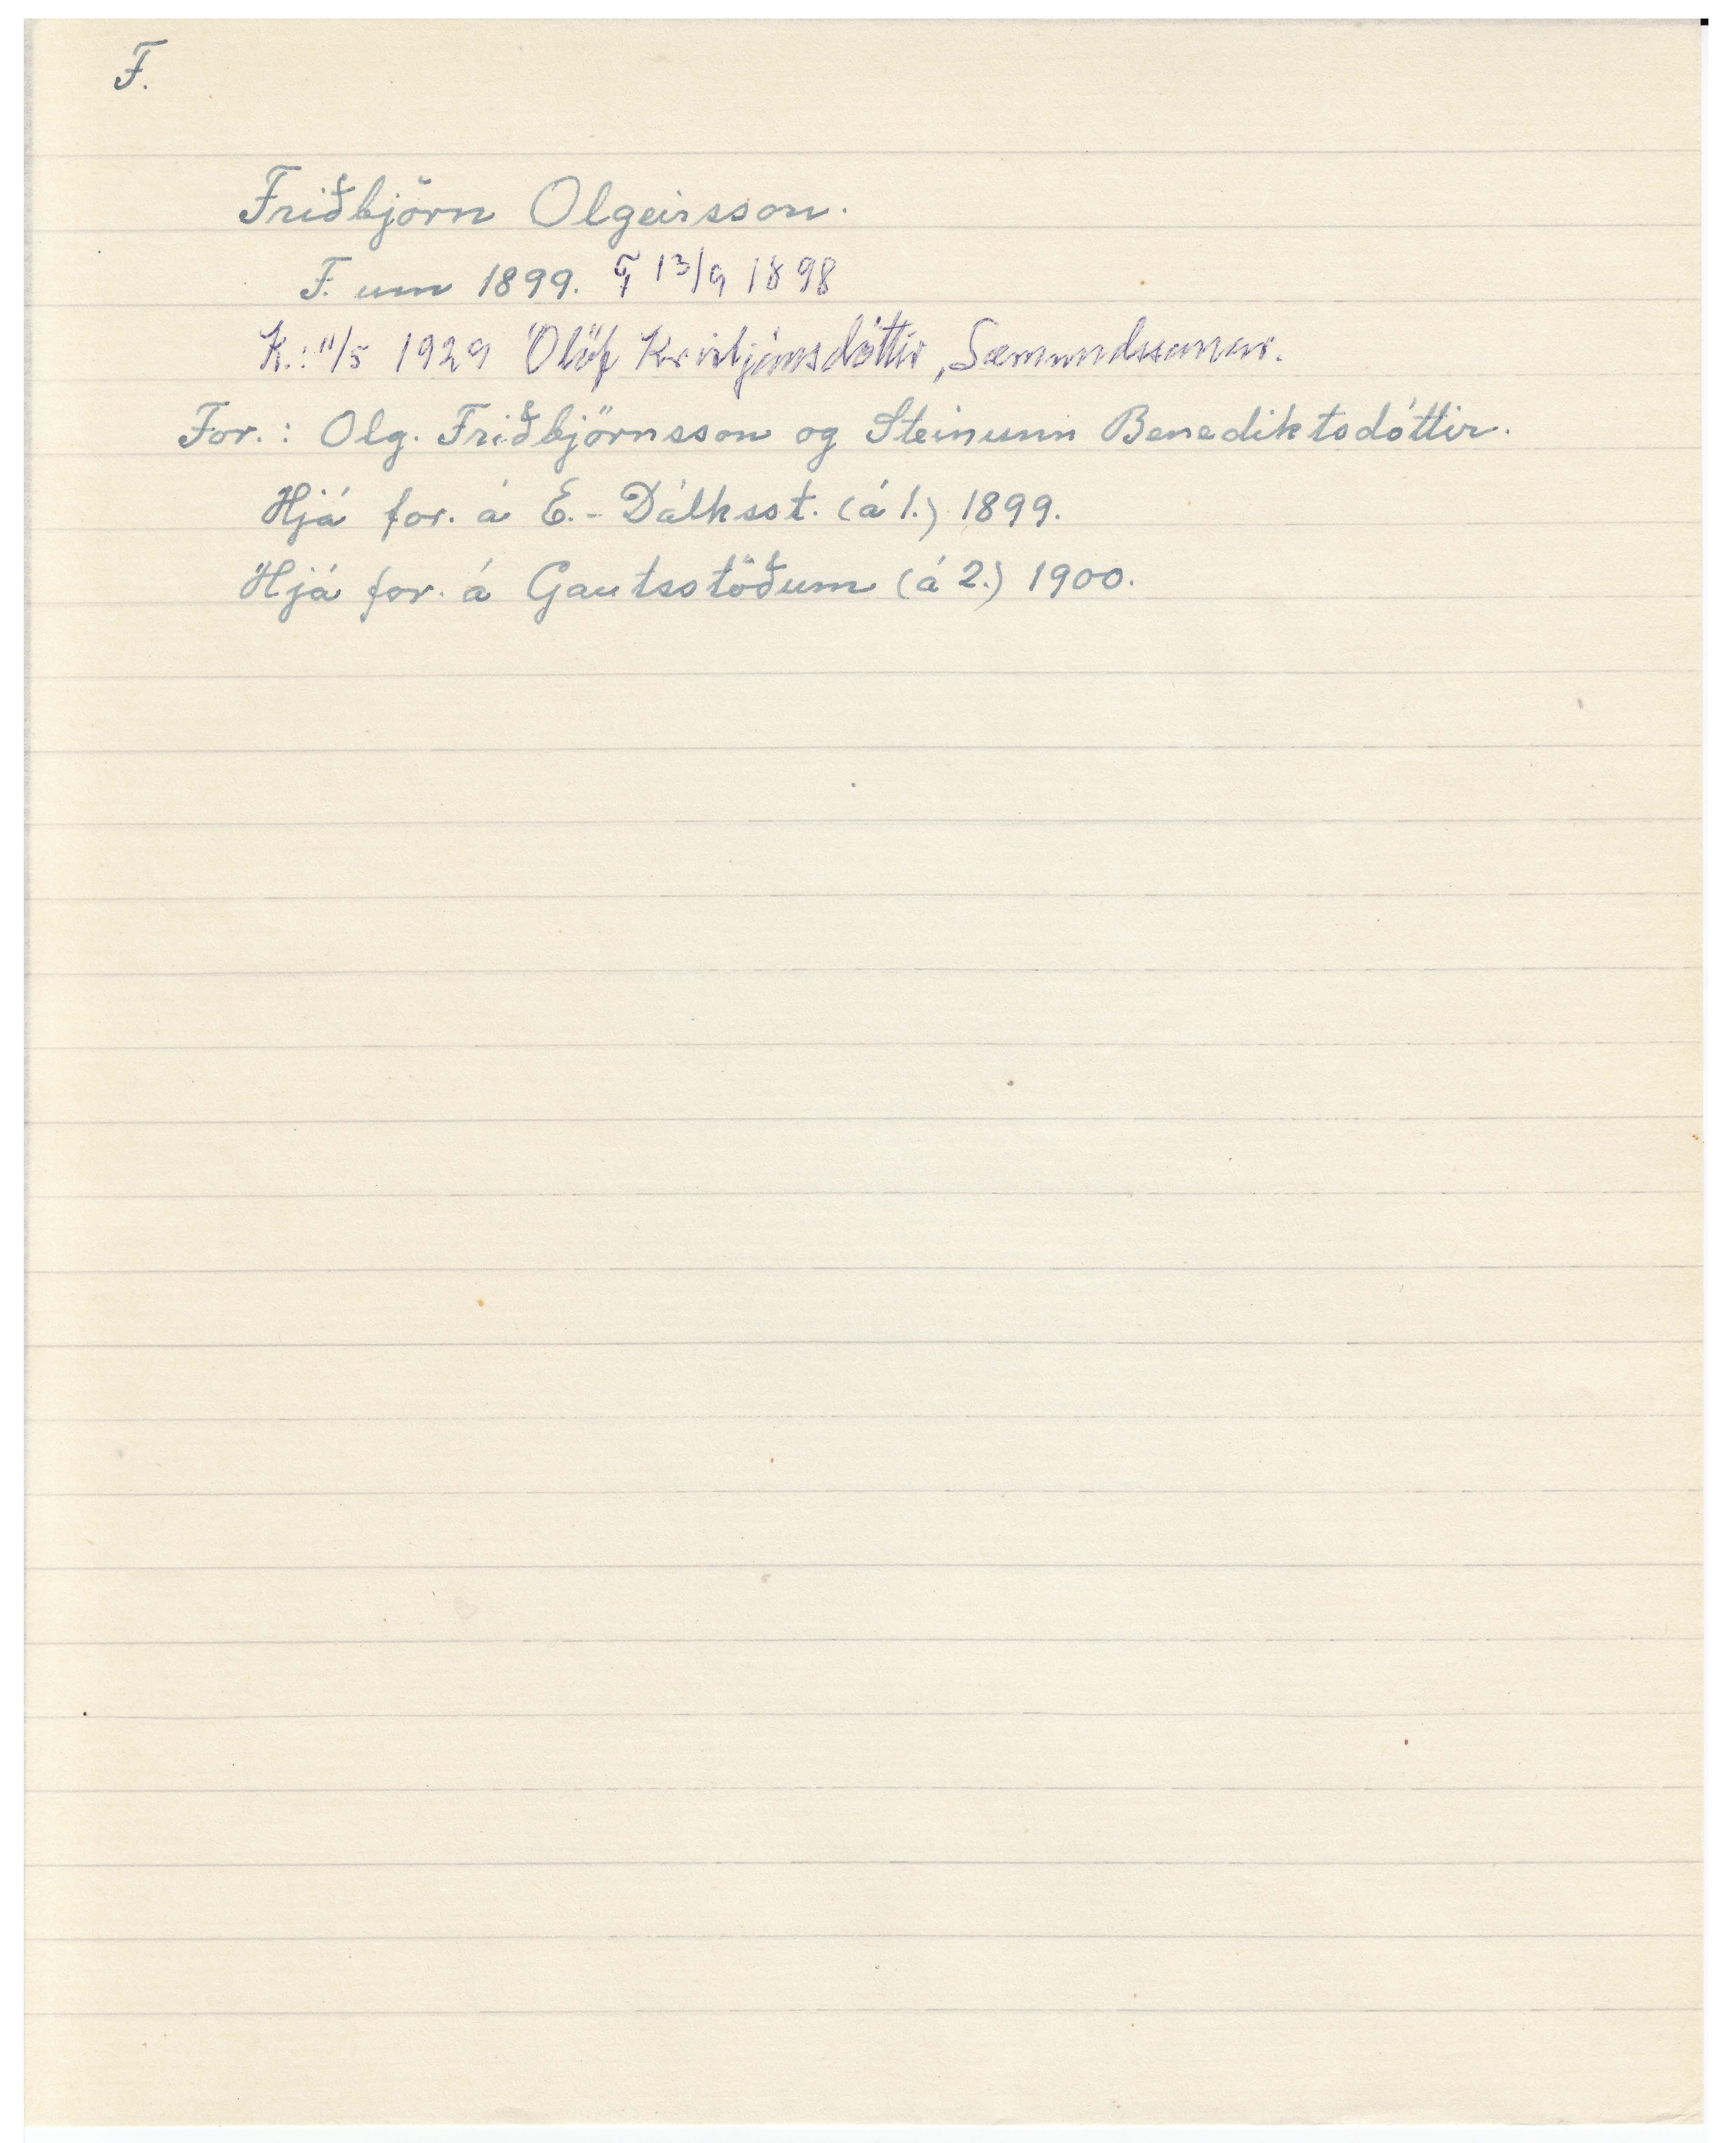 F.
Friðbjörn Olgeirsson.
F. um 1899. F 13/9 1898
K.: 11/5 1929 Ólöf Kristjánsdóttir, Sæmundssonar.
For.: Olg. Friðbjörnsson og Steinunn Benediktsdóttir.
Hjá for. á E.-Dálksst. (á 1.) 1899.
Hjá for. á Gautsstöðum (á 2.) 1900.